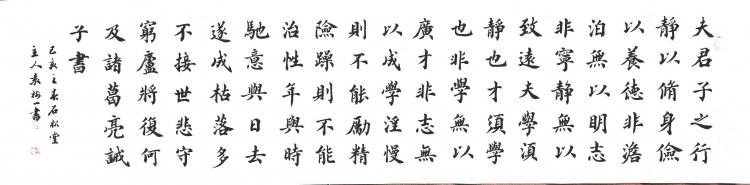 夫君子之行
靜以脩身儉
以養德非澹
泊無以明志
非寧靜無以
致遠夫學須
靜也才須學
也非學無以
廣才非志無
以成學淫慢
則不能勵精
險躁則不能
治性年與時
馳意與日去
遂成枯落多
不接世悲守
窮廬將復何
及諸葛亮誡
子書
己亥之春石松堂
主人袁一書